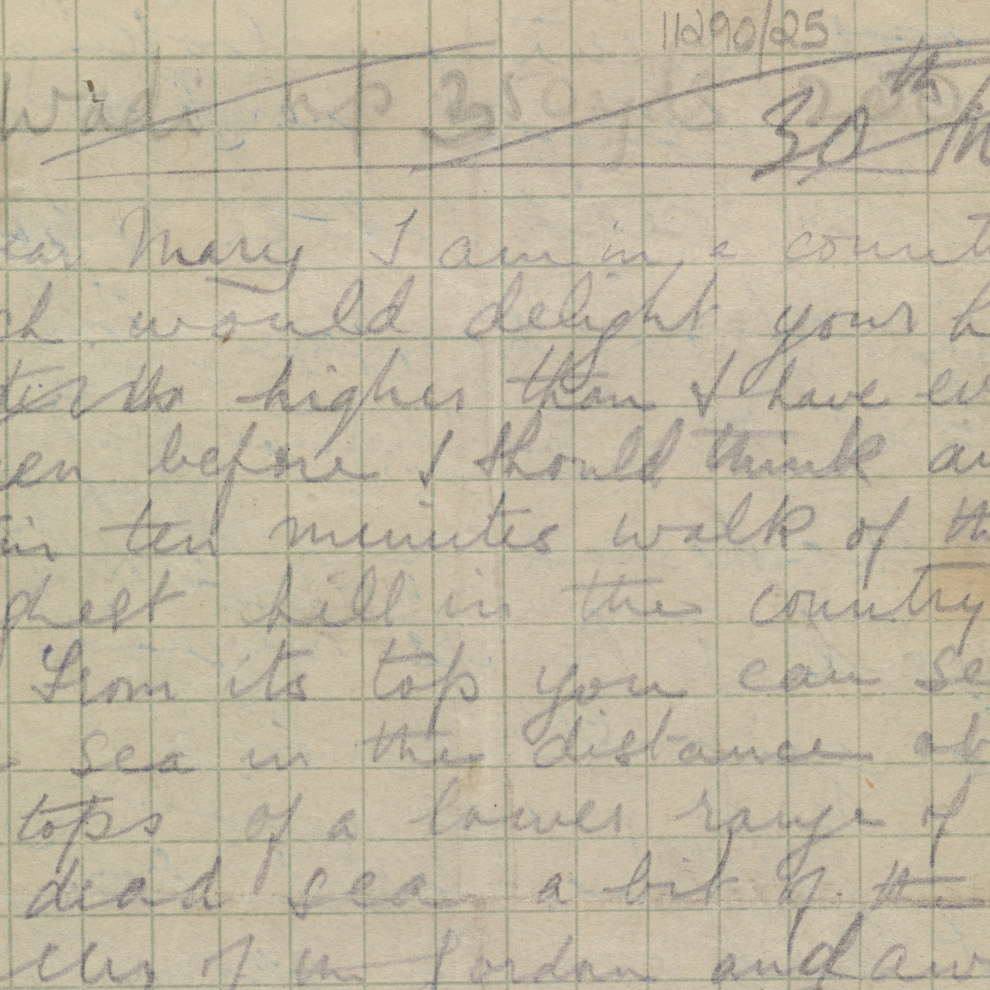 11290/25
Wadi up 350
30th M
ear Mary I am in a count
ch would delight your h
hills higher than I have ev
en before I should think an
in ten minutes walk of th
ghest hill in the country
From its top you can se
sea in the distance ab
tops of a lower range of
dead sea, a bit of the
of the Jordan and aw